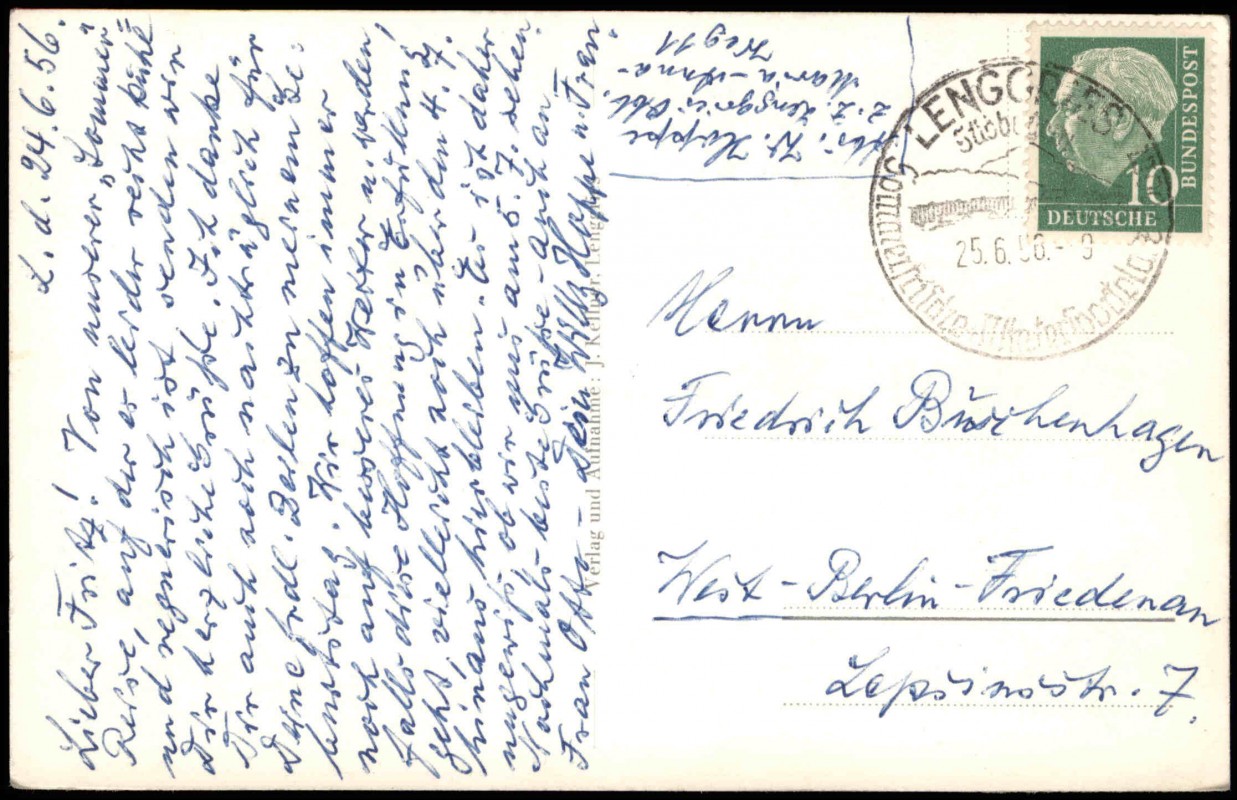 L. d. 24.6.56.
Lieber Fritz! Von unserer „Sommer"
Reise, auf der es leider recht kühl
und regnerisch ist senden wir
Dir herzliche Grüße. Ich danke
Dir auch noch nachträglich für
Deine frdl. Zeilen zu meinem Ge-
burtstag. Wir hoffen immer
noch auf besseres Wetter u. werden,
falls diese Hoffnung in Erfüllung
geht, vielleicht noch über den 4.7.
hinaus hierbleiben. Es ist daher
ungewiß ob wir uns am 5.7. sehen.
Nochmals beste Grüße - auch an
Frau Otto - Dein Willy Hoppe u. Frau
Verlag und Aufnahme: J. Kellner, Lengg
Abs.: W. Hoppe
z. Z. Lenggries Obb.
Maria-Anna-
Weg 11
LENGGRIES
Südb
25.6.56.- 9
Sommerfrische-Wintersportplatz
BUNDESPOST
10
DEUTSCHE
Herrn
Friedrich Büschenhagen
West-Berlin-Friedenau
Lepsiusstr. 7.